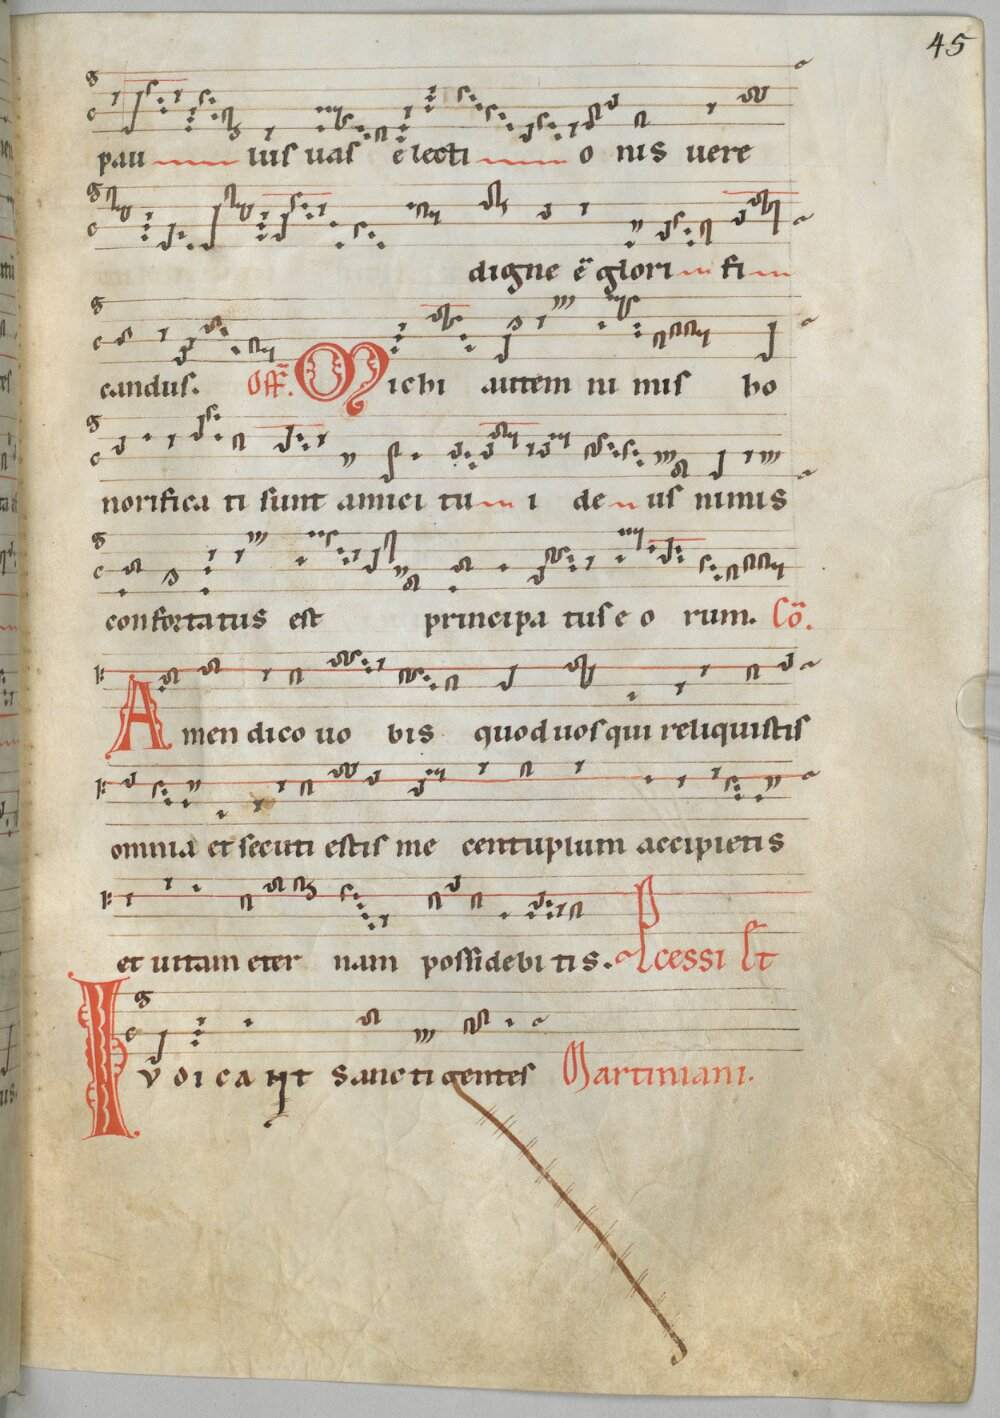 45
pau lus uas electi o nis uere
digne ē glori fi
candus. Off̄. Michi autem ni mis ho
norifica ti sunt amici tu i de us nimis
confortatus est principa tus e o rum. Cō.
Amen dico uo bis quod uos qui reliquistis
omnia et secuti estis me centuplum accipietis
et uitam eter nam possidebi tis. Pcessi Et
Iudicant sancti gentes Martiniani.